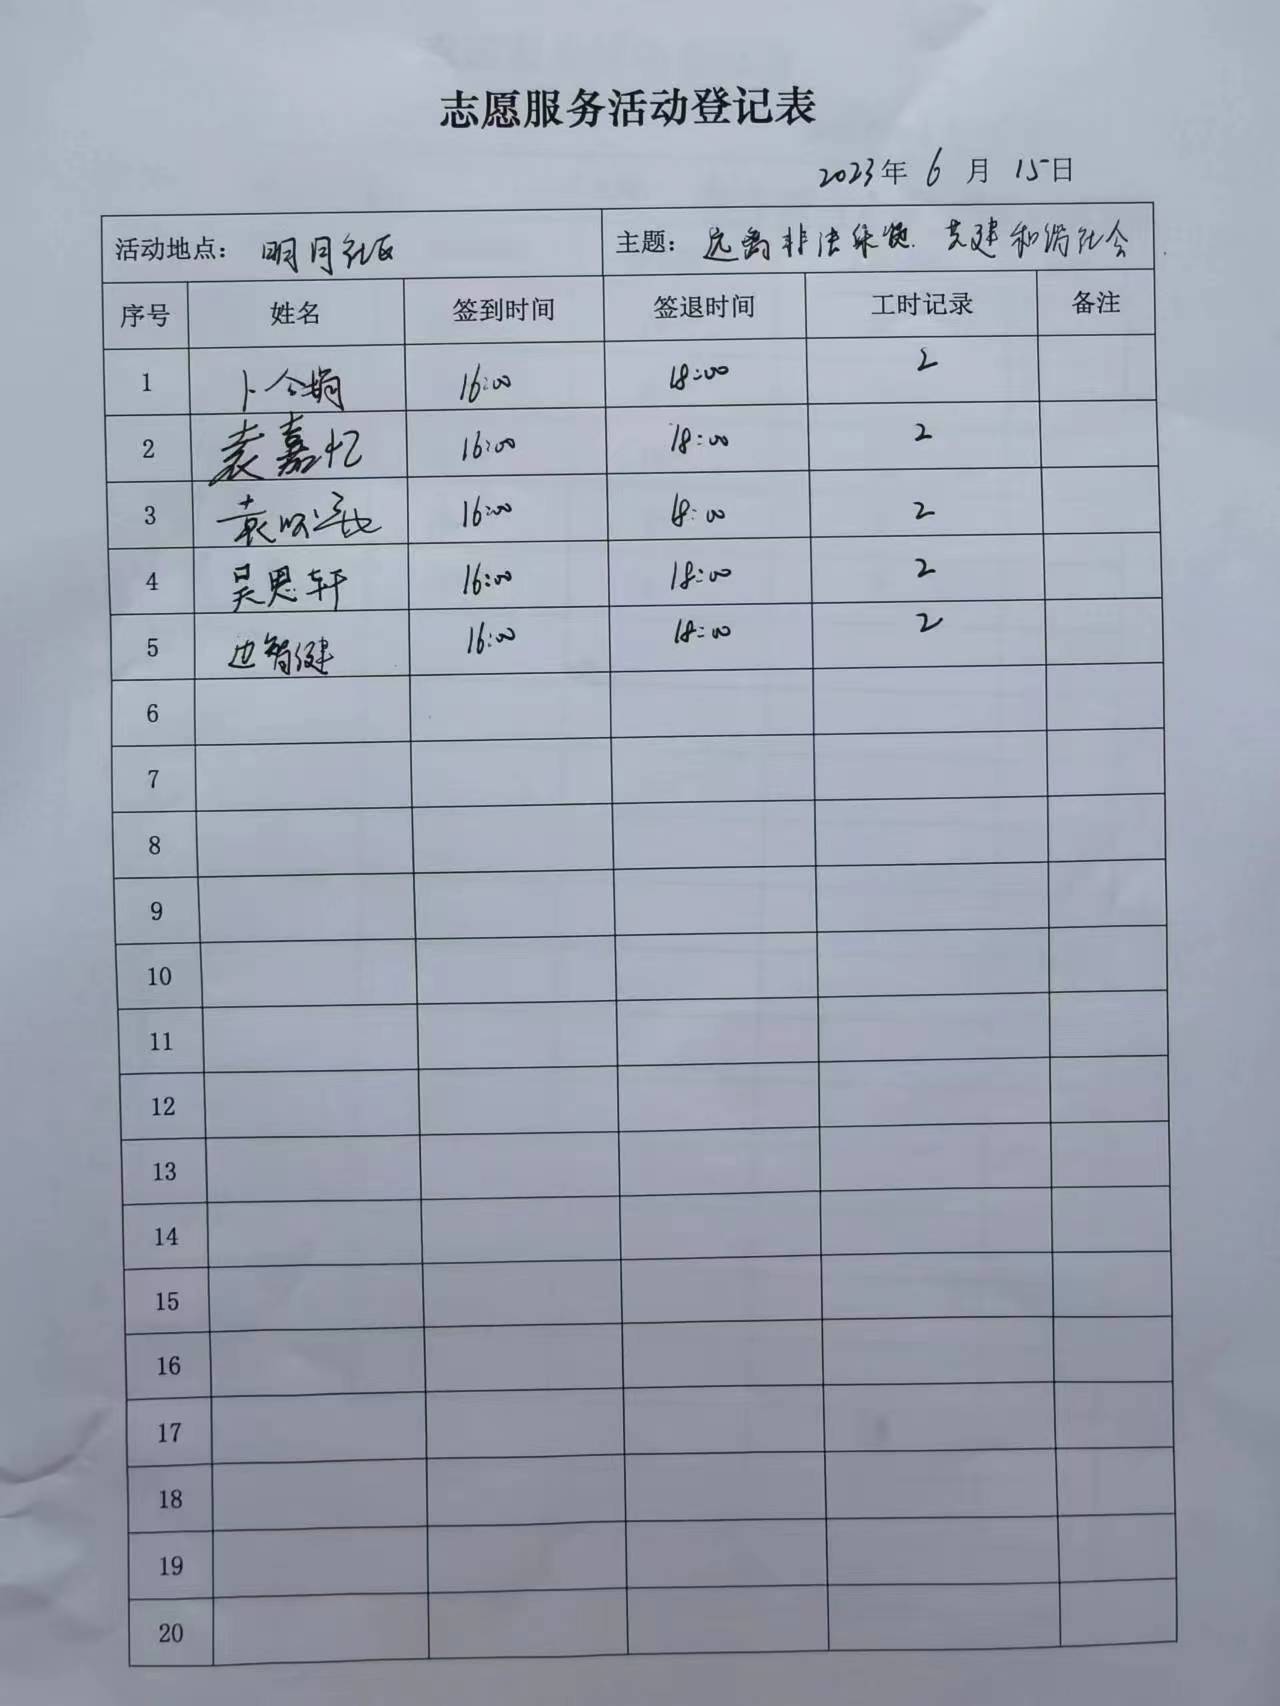 志愿服务活动登记表
2023年 6 月 15日
活动地点: 明月社区 主题: 远离非法集资 共建和谐社会
序号 姓名 签到时间 签退时间 工时记录 备注
1 卜令娟 16:00 18:00 2
2 袁嘉忆 16:00 18:00 2
3 袁 16:00 18:00 2
4 吴思轩 16:00 18:00 2
5 边智健 16:00 18:00 2
6
7
8
9
10
11
12
13
14
15
16
17
18
19
20